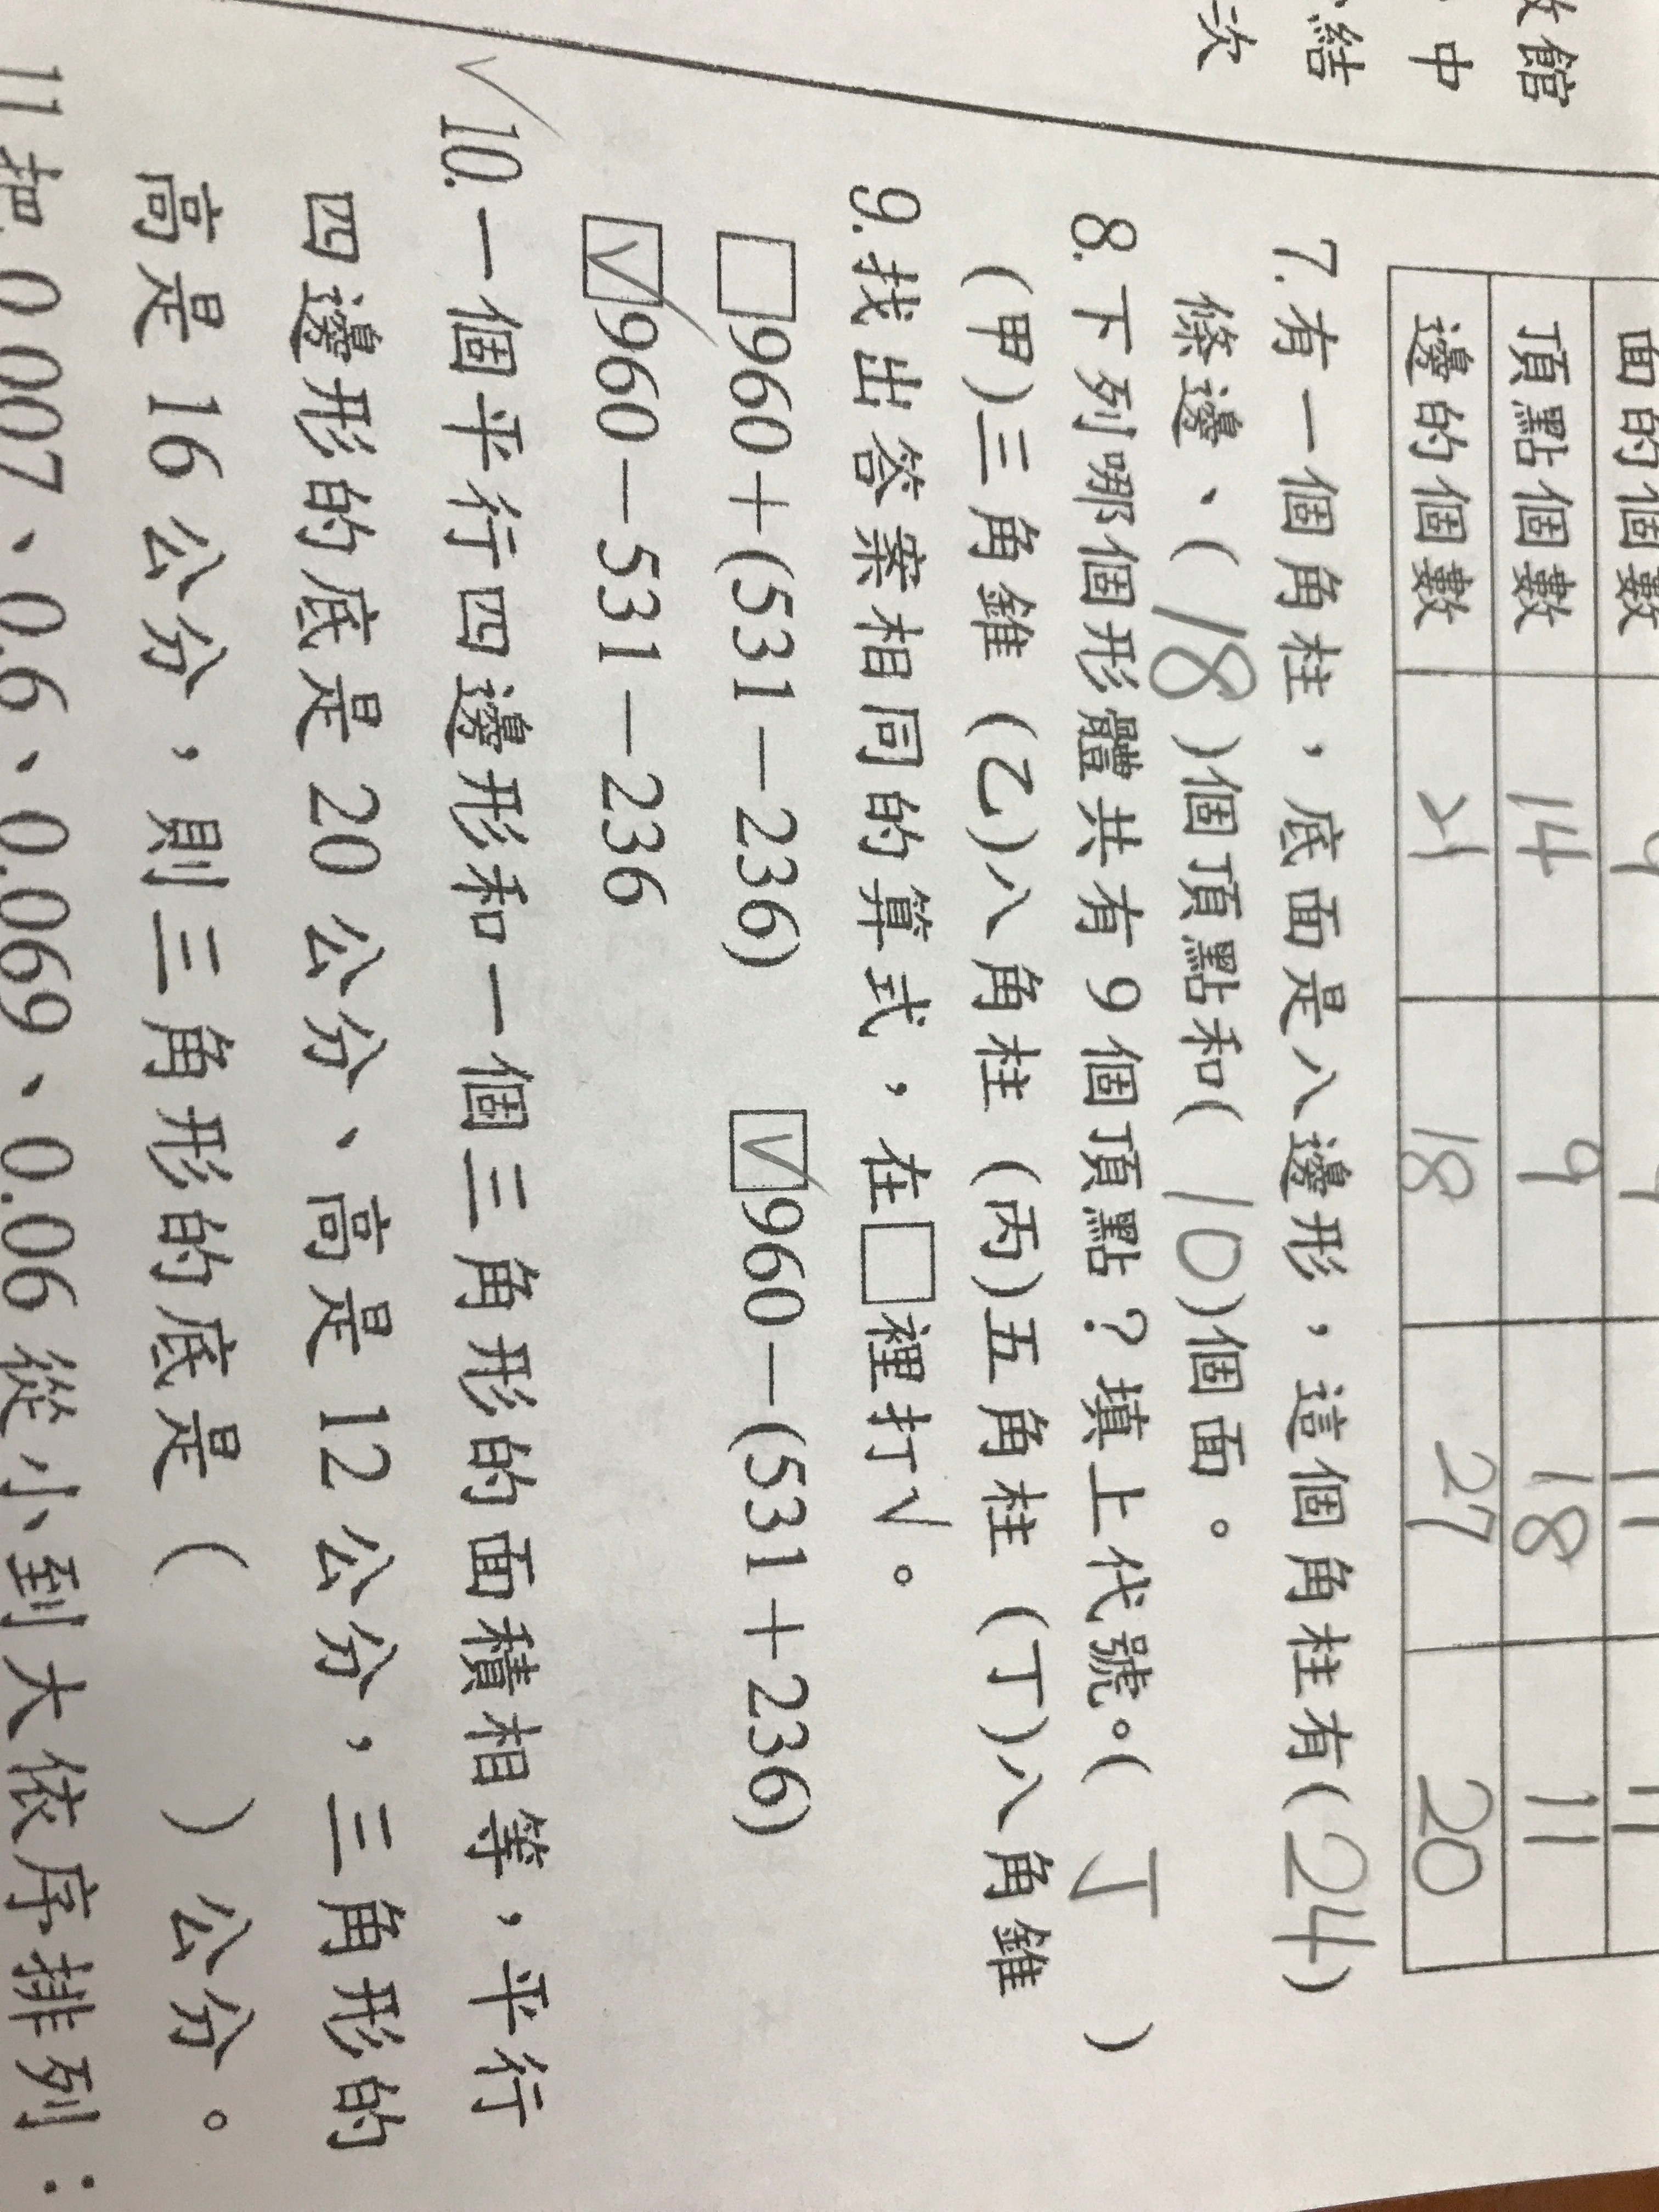 館
中
結
次
面的個數 9
頂點個數 14 9 18 11
邊的個數 21 18 27 20
7.有一個角柱，底面是八邊形，這個角柱有(24)
條邊、(18)個頂點和(10)個面。
8.下列哪個形體共有9個頂點？填上代號。(丁)
(甲)三角錐 (乙)八角柱 (丙)五角柱 (丁)八角錐
9.找出答案相同的算式，在□裡打√。
□960+(531-236) ☑960-(531+236)
☑960-531-236
✓10.一個平行四邊形和一個三角形的面積相等，平行
四邊形的底是20公分、高是12公分，三角形的
高是16公分，則三角形的底是( )公分。
11.把0.007、0.6、0.069、0.06從小到大依序排列：